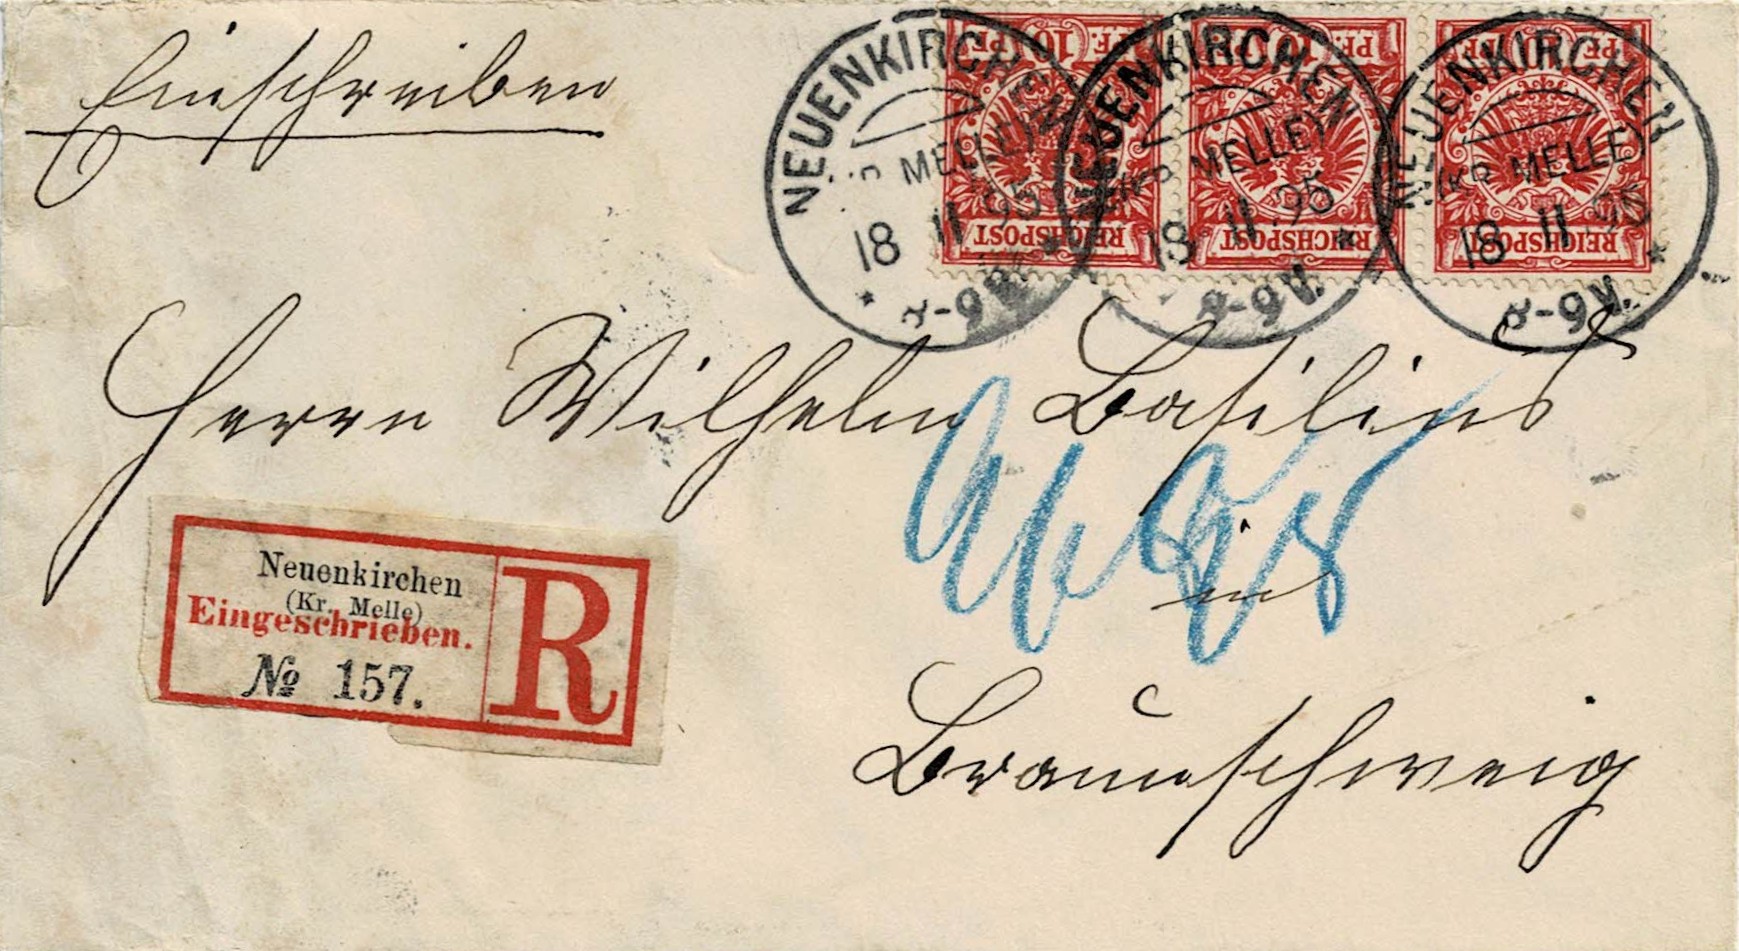 Einschreiben
PF. 10 PF. PF. 10 PF. PF. 10 PF.
REICHSPOST REICHSPOST REICHSPOST
NEUENKIRCHEN NEUENKIRCHEN NEUENKIRCHEN
MELLE) (KR. MELLE) (KR. MELLE)
18 11 95 18 11 95 18 11 95
8-9V. 8-9V. 8-9V.
Herrn Wilhelm Basilius
in
Braunschweig
Neuenkirchen
(Kr. Melle)
Eingeschrieben.
№ 157.
R